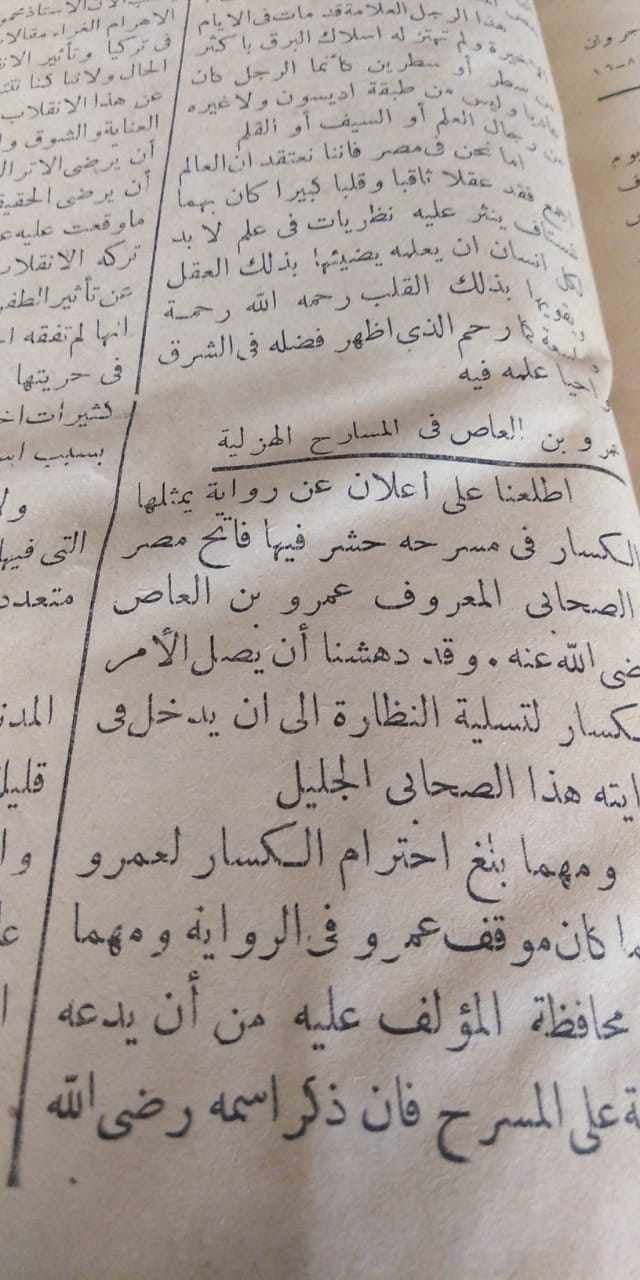 هذا الرجل العلامة قد مات فى الايام
الاخيرة ولم تهتز له اسلاك البرق باكثر
من سطر أو سطرين كأنما الرجل كان
عاديا وليس من طبقة اديسون ولا غيره
من رجال العلم أو السيف أو القلم
اما نحن فى مصر فاننا نعتقد ان العالم
اجمع فقد عقلا ثاقبا وقلبا كبيرا كان بهما
غستاف ينثر عليه نظريات فى علم لا بد
لكل انسان ان يعلمه يضيئها بذلك العقل
ويقويها بذلك القلب رحمه الله رحمة
واسعة كما رحم الذى اظهر فضله فى الشرق
واحيا علمه فيه
عمرو بن العاص فى المسارح الهزلية
اطلعنا على اعلان عن رواية يمثلها
الكسار فى مسرحه حشر فيها فاتح مصر
الصحابى المعروف عمرو بن العاص
ضى الله عنه . وقد دهشنا أن يصل الأمر
كسار لتسلية النظارة الى ان يدخل فى
ايته هذا الصحابى الجليل
ومهما بلغ احترام الكسار لعمرو
ما كان موقف عمرو فى الرواية ومهما
محافظة المؤلف عليه من أن يدعه
ة على المسرح فان ذكر اسمه رضى الله
الاهرام الغراء مقالا
فى تركيا وتأثير الا
الحال ولاننا كنا
عن هذا الانقلاب
العناية والشوق و
أن يرضى الاترا
أن يرضى الحقيق
ما وقعت عليه ع
تركه الانقلا
عن تأثير الطف
انها لم تفقه ا
فى حريتها
كثيرات ا
بسبب ا
ولا
التى فيها
متعدد
المدن
قليلا
وا
ع
ا
يوم